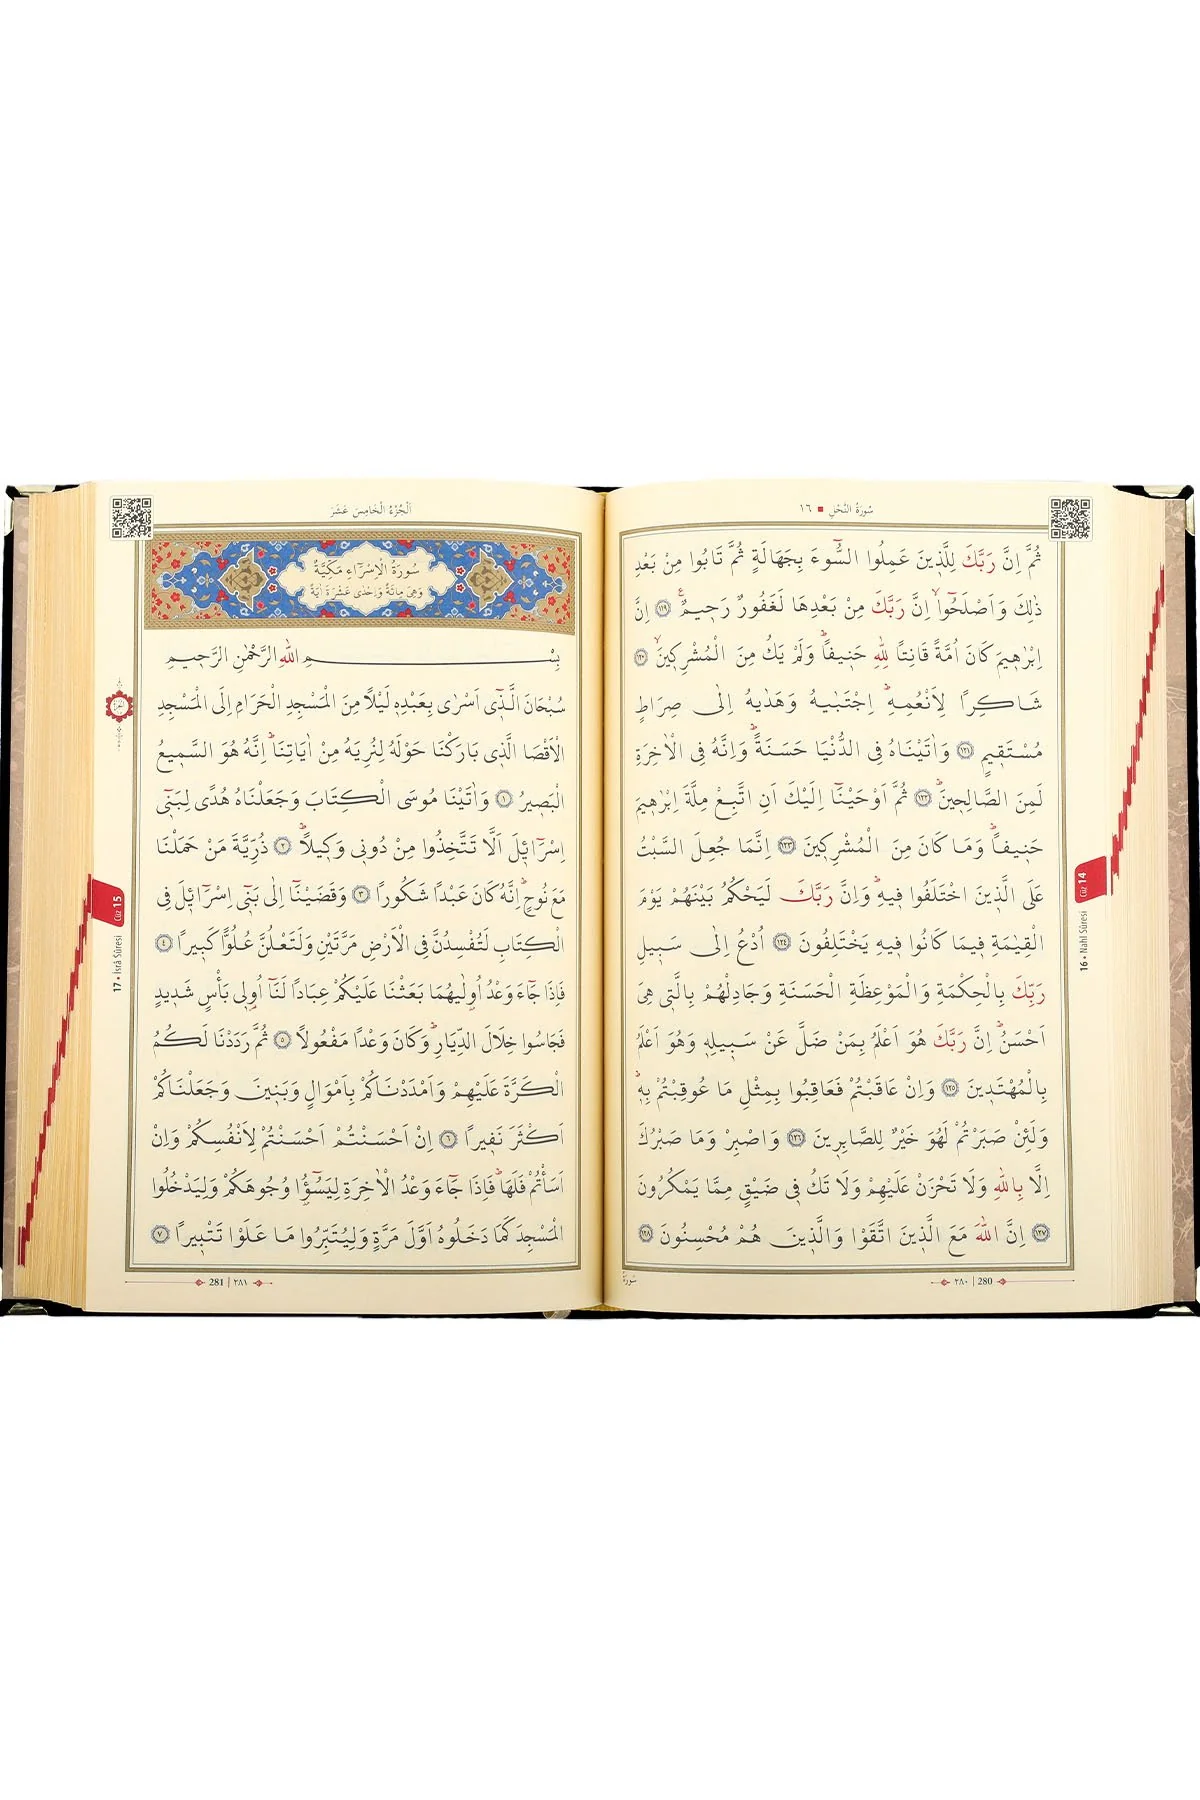 سُورَةُ النَّحْلِ ١٦
ثُمَّ اِنَّ رَبَّكَ لِلَّذ۪ينَ عَمِلُوا السُّٓوءَ بِجَهَالَةٍ ثُمَّ تَابُوا مِنْ بَعْدِ
ذٰلِكَ وَاَصْلَحُٓوا اِنَّ رَبَّكَ مِنْ بَعْدِهَا لَغَفُورٌ رَح۪يمٌ ﴿١١٩﴾ اِنَّ
اِبْرٰه۪يمَ كَانَ اُمَّةً قَانِتًا لِلّٰهِ حَن۪يفًا وَلَمْ يَكُ مِنَ الْمُشْرِك۪ينَ ﴿١٢٠﴾
شَاكِرًا لِاَنْعُمِهِ اِجْتَبٰيهُ وَهَدٰيهُ اِلٰى صِرَاطٍ
مُسْتَق۪يمٍ ﴿١٢١﴾ وَاٰتَيْنَاهُ فِي الدُّنْيَا حَسَنَةً وَاِنَّهُ فِي الْاٰخِرَةِ
لَمِنَ الصَّالِح۪ينَ ﴿١٢٢﴾ ثُمَّ اَوْحَيْنَٓا اِلَيْكَ اَنِ اتَّبِعْ مِلَّةَ اِبْرٰه۪يمَ
حَن۪يفًا وَمَا كَانَ مِنَ الْمُشْرِك۪ينَ ﴿١٢٣﴾ اِنَّمَا جُعِلَ السَّبْتُ
عَلَى الَّذ۪ينَ اخْتَلَفُوا ف۪يهِ وَاِنَّ رَبَّكَ لَيَحْكُمُ بَيْنَهُمْ يَوْمَ
الْقِيٰمَةِ ف۪يمَا كَانُوا ف۪يهِ يَخْتَلِفُونَ ﴿١٢٤﴾ اُدْعُ اِلٰى سَب۪يلِ
رَبِّكَ بِالْحِكْمَةِ وَالْمَوْعِظَةِ الْحَسَنَةِ وَجَادِلْهُمْ بِالَّت۪ي هِيَ
اَحْسَنُ اِنَّ رَبَّكَ هُوَ اَعْلَمُ بِمَنْ ضَلَّ عَنْ سَب۪يلِه۪ وَهُوَ اَعْلَمُ
بِالْمُهْتَد۪ينَ ﴿١٢٥﴾ وَاِنْ عَاقَبْتُمْ فَعَاقِبُوا بِمِثْلِ مَا عُوقِبْتُمْ بِه۪
وَلَئِنْ صَبَرْتُمْ لَهُوَ خَيْرٌ لِلصَّابِر۪ينَ ﴿١٢٦﴾ وَاصْبِرْ وَمَا صَبْرُكَ
اِلَّا بِاللّٰهِ وَلَا تَحْزَنْ عَلَيْهِمْ وَلَا تَكُ ف۪ي ضَيْقٍ مِمَّا يَمْكُرُونَ
﴿١٢٧﴾ اِنَّ اللّٰهَ مَعَ الَّذ۪ينَ اتَّقَوْا وَالَّذ۪ينَ هُمْ مُحْسِنُونَ ﴿١٢٨﴾
٢٨٠ | 280
سُورَةُ
Cüz 14
16 • Nahl Sûresi
اَلْجُزْءُ الْخَامِسَ عَشَرَ
سُورَةُ الْاِسْرَٓاءِ مَكِّيَّةٌ
وَهِيَ مِائَةٌ وَاِحْدٰى عَشْرَةَ اٰيَةً
بِسْمِ اللّٰهِ الرَّحْمٰنِ الرَّح۪يمِ
سُبْحَانَ الَّذ۪ٓي اَسْرٰى بِعَبْدِه۪ لَيْلًا مِنَ الْمَسْجِدِ الْحَرَامِ اِلَى الْمَسْجِدِ
الْاَقْصَا الَّذ۪ي بَارَكْنَا حَوْلَهُ لِنُرِيَهُ مِنْ اٰيَاتِنَا اِنَّهُ هُوَ السَّم۪يعُ
الْبَص۪يرُ ﴿١﴾ وَاٰتَيْنَا مُوسَى الْكِتَابَ وَجَعَلْنَاهُ هُدًى لِبَن۪ٓي
اِسْرَٓائ۪لَ اَلَّا تَتَّخِذُوا مِنْ دُون۪ي وَك۪يلًا ﴿٢﴾ ذُرِّيَّةَ مَنْ حَمَلْنَا
مَعَ نُوحٍ اِنَّهُ كَانَ عَبْدًا شَكُورًا ﴿٣﴾ وَقَضَيْنَٓا اِلٰى بَن۪ٓي اِسْرَٓائ۪لَ فِي
الْكِتَابِ لَتُفْسِدُنَّ فِي الْاَرْضِ مَرَّتَيْنِ وَلَتَعْلُنَّ عُلُوًّا كَب۪يرًا ﴿٤﴾
فَاِذَا جَٓاءَ وَعْدُ اُو۫لٰيهُمَا بَعَثْنَا عَلَيْكُمْ عِبَادًا لَنَٓا اُو۬ل۪ي بَأْسٍ شَد۪يدٍ
فَجَاسُوا خِلَالَ الدِّيَارِ وَكَانَ وَعْدًا مَفْعُولًا ﴿٥﴾ ثُمَّ رَدَدْنَا لَكُمُ
الْكَرَّةَ عَلَيْهِمْ وَاَمْدَدْنَاكُمْ بِاَمْوَالٍ وَبَن۪ينَ وَجَعَلْنَاكُمْ
اَكْثَرَ نَف۪يرًا ﴿٦﴾ اِنْ اَحْسَنْتُمْ اَحْسَنْتُمْ لِاَنْفُسِكُمْ وَاِنْ
اَسَأْتُمْ فَلَهَا فَاِذَا جَٓاءَ وَعْدُ الْاٰخِرَةِ لِيَسُٓؤُ۫ا وُجُوهَكُمْ وَلِيَدْخُلُوا
الْمَسْجِدَ كَمَا دَخَلُوهُ اَوَّلَ مَرَّةٍ وَلِيُتَبِّرُوا مَا عَلَوْا تَتْب۪يرًا ﴿٧﴾
281 | ٢٨١
Cüz 15
17 • İsrâ Sûresi